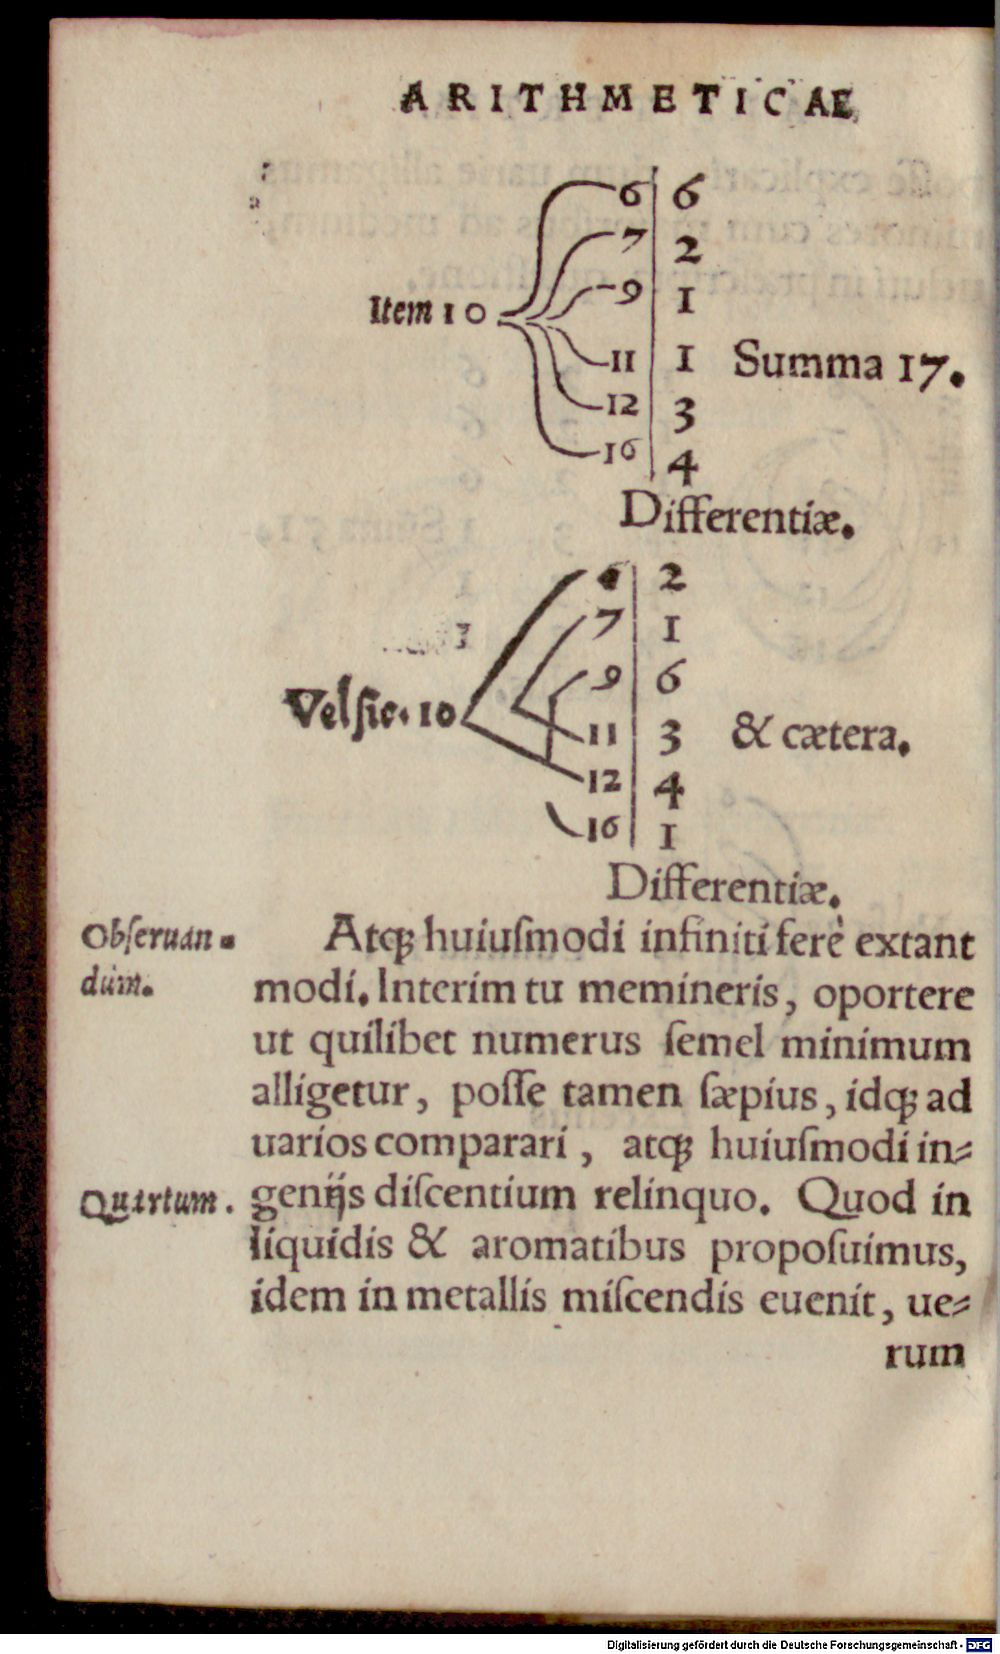 ARITHMETICAE
6 6
7 2
9 1
Item 10
11 1 Summa 17.
12 3
16 4
Differentiæ.
6 2
7 1
9 6
Vel sic. 10
11 3 & cætera.
12 4
16 1
Differentiæ.
Obſeruan-
dum.
Atq; huiuſmodi infiniti ferè extant
modi. Interim tu memineris, oportere
ut quilibet numerus ſemel minimum
alligetur, poſſe tamen ſæpius, idq; ad
uarios comparari, atq; huiuſmodi in⸗
Quartum.
genijs diſcentium relinquo. Quod in
liquidis & aromatibus propoſuimus,
idem in metallis miſcendis euenit, ue⸗
rum
Digitalisierung gefördert durch die Deutsche Forschungsgemeinschaft - DFG